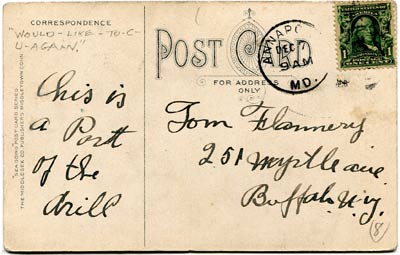 CORRESPONDENCE
"WOULD-LIKE-TO-C-
U-AGAIN."
This is
a Part
of the
drill
"SEA DOGS" POST CARD SERIES
THE MIDDLESEX CO. PUBLISHERS, MIDDLETOWN CONN.
POST CARD
FOR ADDRESS
ONLY
ANNAPO
DEC 7
9 AM
MD.
1
Tom Flannery
251 Myrtle ave
Buffalo N.Y.
(8)